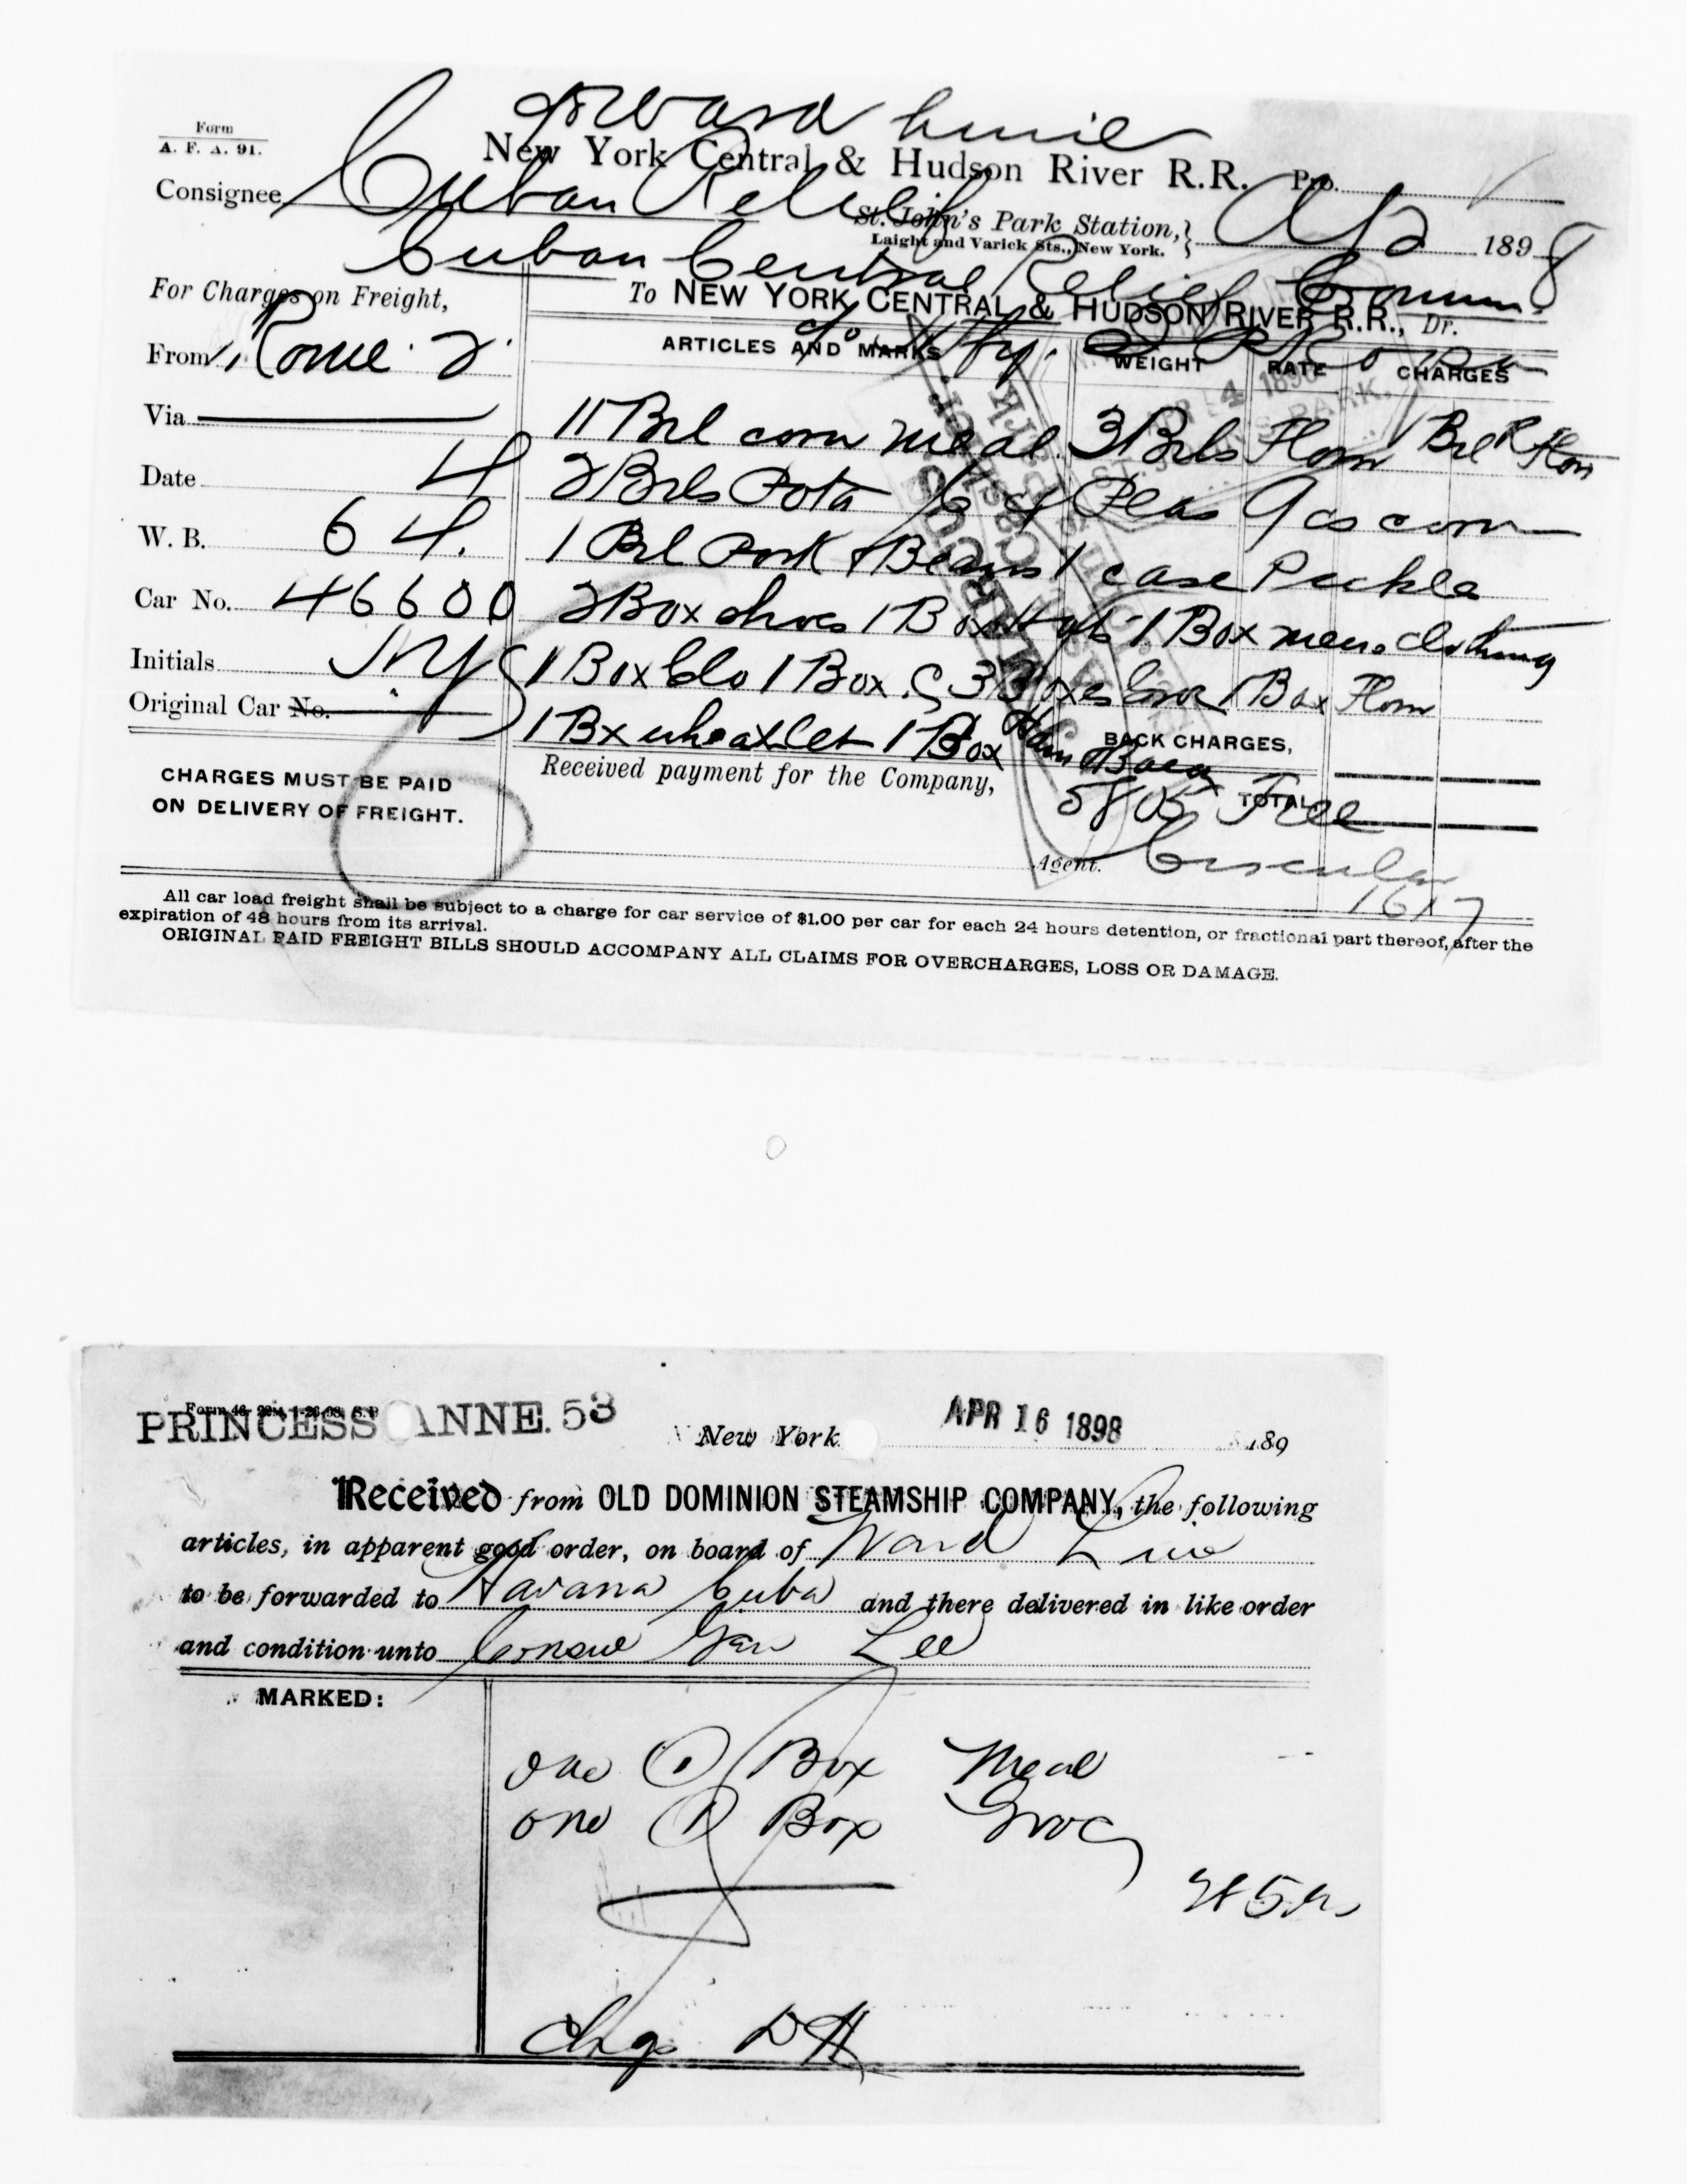 Form
A. F. A. 91.
New York Central & Hudson River R.R. Pro.
Consignee Cuban Relief
St. John's Park Station,
Laight and Varick Sts., New York.
1898
Cuban Central Relief Comm.
For Charges on Freight,
To NEW YORK CENTRAL & HUDSON RIVER R.R., Dr.
From Rome 2
ARTICLES AND MARKS WEIGHT RATE CHARGES
Via
11 Brl corn meal 3 Brls Flour 1 Brl R Flou
Date 4
2 Brls Pota Peas 9 cs corn
W. B. 64.
1 Brl Pork & Beans 1 case Pickle
Car No. 46600
2 Box shoes 1 Box Hats 1 Box mens clothing
Initials NYC
1 Box Clo 1 Box S 3 Boxes Groc 1 Box Flour
Original Car No.
1 Bx wheatlet 1 Box Ham & Bacn
BACK CHARGES,
CHARGES MUST BE PAID
ON DELIVERY OF FREIGHT.
Received payment for the Company,
5805 TOTAL Free
Agent. Circular
1617
All car load freight shall be subject to a charge for car service of $1.00 per car for each 24 hours detention, or fractional part thereof, after the
expiration of 48 hours from its arrival.
ORIGINAL PAID FREIGHT BILLS SHOULD ACCOMPANY ALL CLAIMS FOR OVERCHARGES, LOSS OR DAMAGE.
PRINCESS ANNE. 53
New York APR 16 1898 189
Received from OLD DOMINION STEAMSHIP COMPANY, the following
articles, in apparent good order, on board of Ward Line
to be forwarded to Havana Cuba and there delivered in like order
and condition unto Consul Gen Lee
MARKED:
one (1) Box Meal
one (1) Box Groc
Chgs DH